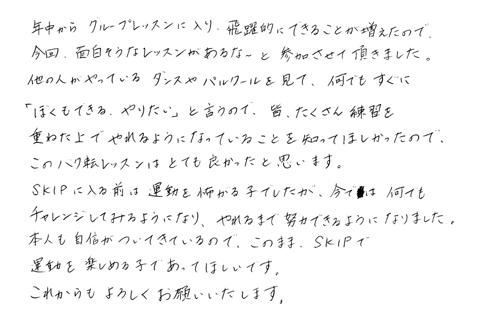 年中から グループレッスンに入り、飛躍的にできることが増えたので、
今回、面白そうなレッスンがあるな〜と 参加させて頂きました。
他の人がやっている ダンスやパルクールを見て、何でもすぐに
「ぼくもできる、やりたい」と言うので、皆、たくさん練習を
重ねた上でやれるようになっていることを知ってほしかったので、
このバク転レッスンはとても良かったと思います。
SKIPに入る前は運動を怖がる子でしたが、今では何でも
チャレンジしてみるようになり、やれるまで努力できるようになりました。
本人も自信がついてきているので、このまま、SKIPで
運動を楽しめる子であってほしいです。
これからもよろしくお願いいたします。